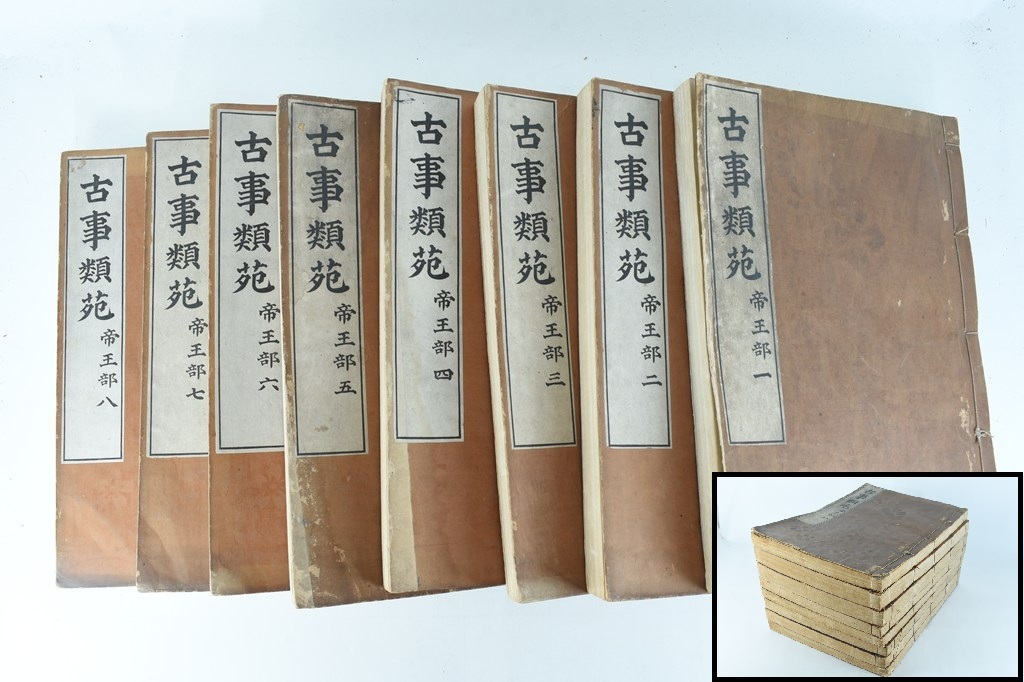 古事類苑 帝王部一
古事類苑 帝王部二
古事類苑 帝王部三
古事類苑 帝王部四
古事類苑 帝王部五
古事類苑 帝王部六
古事類苑 帝王部七
古事類苑 帝王部八